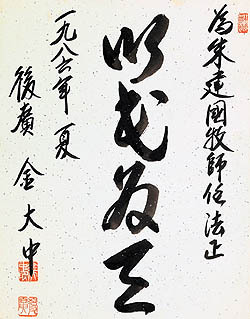 為朱建國牧師法正
以民為天
一九八六年 夏
後廣 金大中